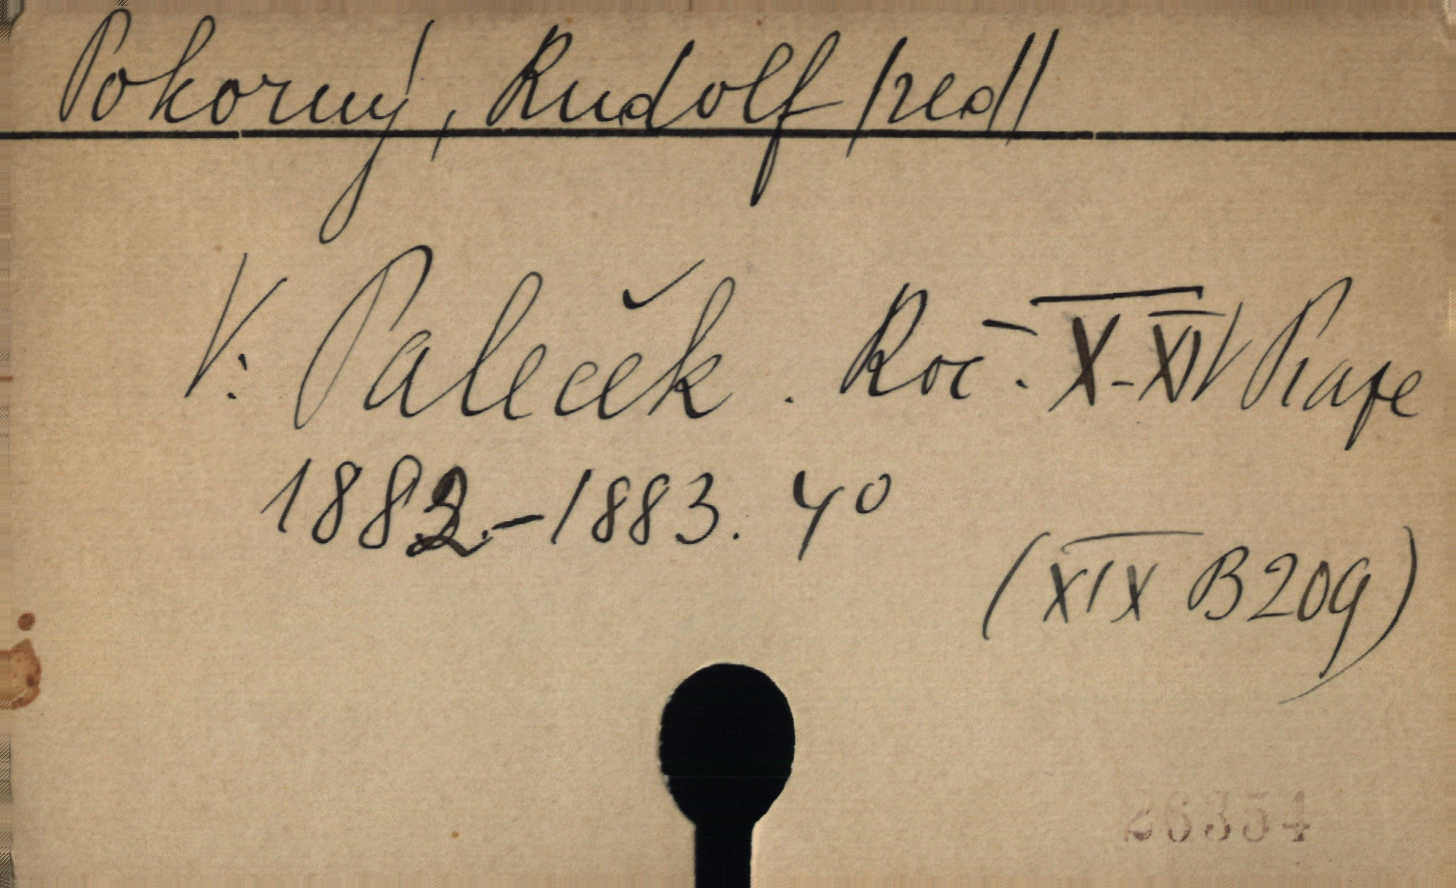 Pokorný, Rudolf /red/
V: Paleček. Roč. X-XIV Praze
1882.-1883. 4°
(XIX B 209)